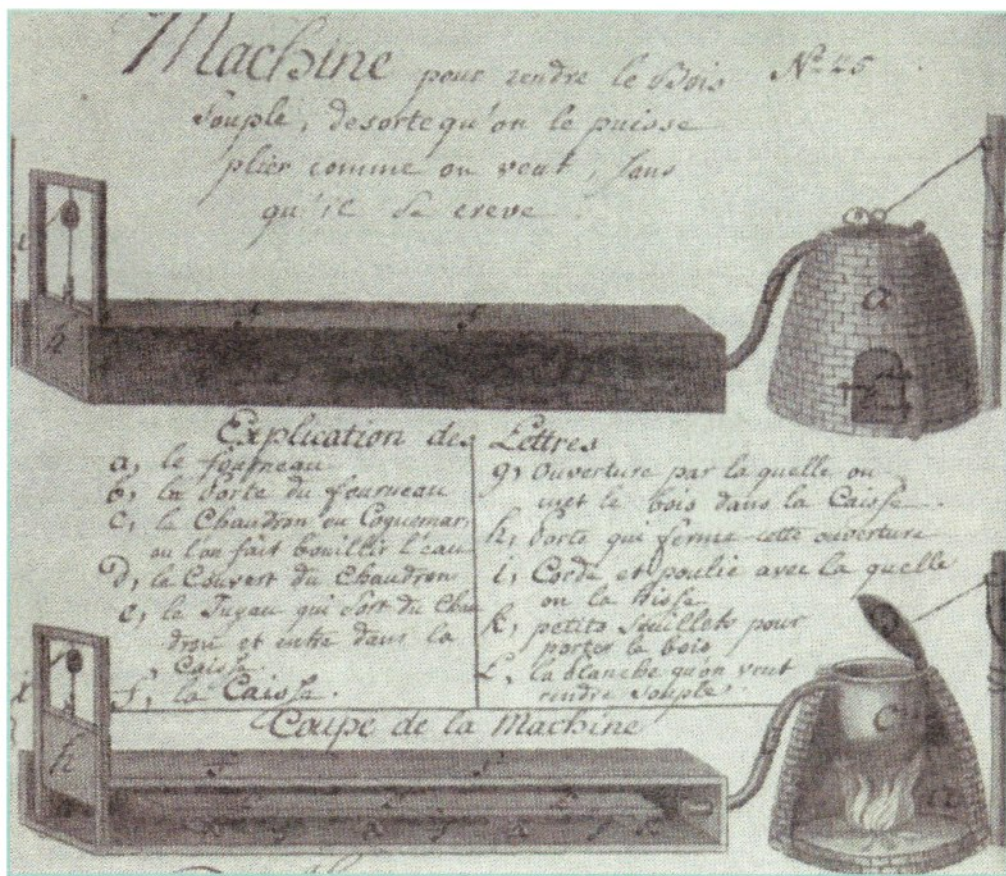 Machine pour rendre le Bois Nº 25
Souple, desorte qu'on le puisse
plier comme on veut, sans
qu'il se creve.
i
h
f f
a
Explication des Lettres
a, le fourneau
b, la Porte du fourneau
c, le Chaudron ou Coquemar,
ou l'on fait bouillir l'eau
D, le Couvert du Chaudron
e, le Tuyau qui Sort du Chau
dron et entre dans la
Caisse
f, la Caisse.
g, Ouverture par la quelle on
met le bois dans la Caisse.
h, Porte qui ferme cette ouverture
i, Corde et poulie avec la quelle
on la hisse
k, petits
pour
porter le bois
L, la planche qu'on veut
rendre Souple.
Coupe de la Machine
h
f f
C
a